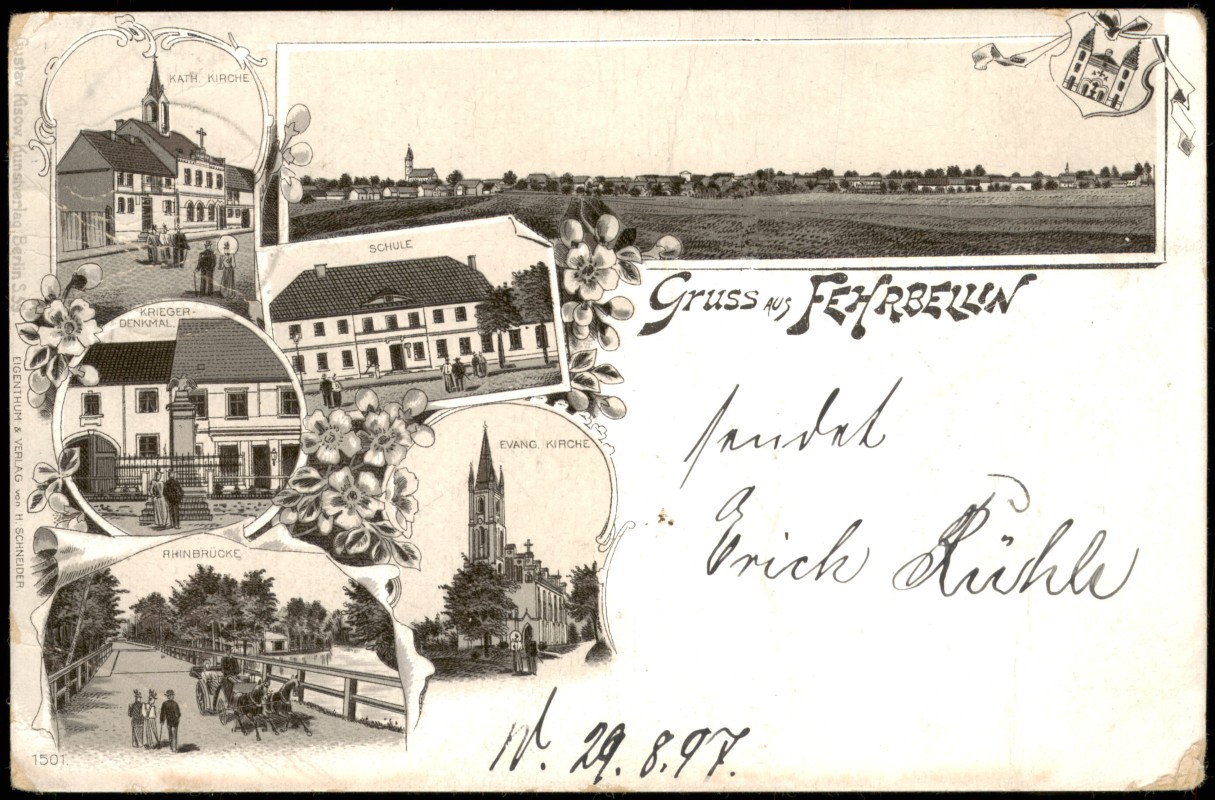 Gustav Kisow, Kunstverlag, Berlin S.
KATH. KIRCHE
SCHULE
Gruss aus FEHRBELLIN
KRIEGER-
DENKMAL.
EVANG. KIRCHE
RHINBRÜCKE
EIGENTHUM & VERLAG von H. SCHNEIDER
1501.
sendet
Erich Kühle
29.8.97.